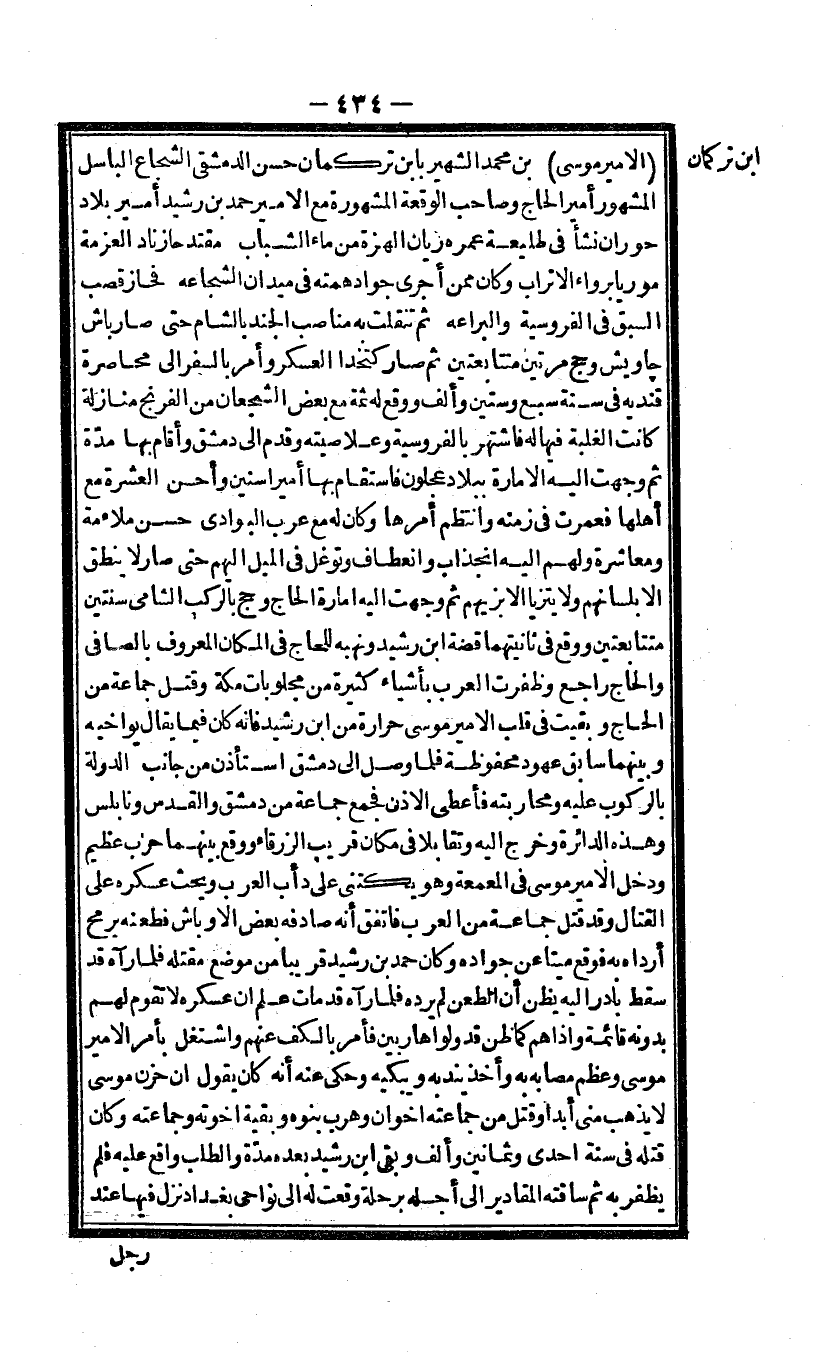 — ٤٣٤ —
ابن تركمان
(الامير موسى) بن محمد الشهير بابن تركمان حسن الدمشقى الشجاع الباسل
المشهور أمير الحاج وصاحب الوقعة المشهورة مع الامير حمد بن رشيد أمير بلاد
حوران نشأ فى طليعة عمره زيان الهزة من ماء الشباب مقتدحا زناد العزمة
موريا برواء الاتراب وكان ممن أجرى جواد همته فى ميدان الشجاعه فحاز قصب
السبق فى الفروسية والبراعه ثم تنقلت به مناصب الجند بالشام حتى صار باش
چاويش وحج مرتين متتابعتين ثم صار كتخدا العسكر وأمر بالسفر الى محاصرة
قنديه فى سنة سبع وستين وألف ووقع له ثمة مع بعض الشجعان من الفرنج منازلة
كانت الغلبة فيها له فاشتهر بالفروسية وعلا صيته وقدم الى دمشق وأقام بها مدّة
ثم وجهت اليه الامارة ببلاد عجلون فاستقام بها أميرا سنين وأحسن العشرة مع
أهلها فعمرت فى زمنه وانتظم أمرها وكان له مع عرب البوادى حسن ملاءمة
ومعاشرة ولهم اليه انجذاب وانعطاف وتوغل فى الميل اليهم حتى صار لا ينطق
الا بلسانهم ولا يتزيا الا بزيهم ثم وجهت اليه امارة الحاج وحج بالركب الشامى سنتين
متتابعتين ووقع فى ثانيتهما قضة ابن رشيد ونهبه للحاج فى المكان المعروف بالصافى
والحاج راجع وظفرت العرب بأشياء كثيرة من مجلوبات مكة وقتل جماعة من
الحاج وبقيت فى قلب الامير موسى حرارة من ابن رشيد فانه كان فيما يقال يواخيه
وبينهما سابق عهود محفوظة فلما وصل الى دمشق استأذن من جانب الدولة
بالركوب عليه ومحاربته فأعطى الاذن فجمع جماعة من دمشق والقدس ونابلس
وهذه الدائرة وخرج اليه وتقابلا فى مكان قريب الزرقاء ووقع بينهما حرب عظيم
ودخل الامير موسى فى المعمعة وهو يكتنى على دأب العرب ويحث عسكره على
القتال وقد قتل جماعة من العرب فاتفق أنه صادفه بعض الاوباش فطعنه برمح
أرداه به فوقع ميتا عن جواده وكان حمد بن رشيد قريبا من موضع مقتله فلما رآه قد
سقط بادر اليه يظن أن الطعن لم يرده فلما رآه قد مات علم ان عسكره لا تقوم لهم
بدونه قائمة واذا هم كما ظن قد ولوا هاربين فأمر بالكف عنهم واشتغل بأمر الامير
موسى وعظم مصابه به وأخذ يندبه ويبكيه وحكى عنه أنه كان يقول ان حزن موسى
لا يذهب منى أبدا وقتل من جماعته اخوان وهرب بنوه وبقية اخوته وجماعته وكان
قتله فى سنة احدى وثمانين وألف وبقى ابن رشيد بعده مدّة والطلب واقع عليه فلم
يظفر به ثم ساقته المقادير الى أجله برحلة وقعت له الى نواحى بغداد نزل فيها عند
رجل